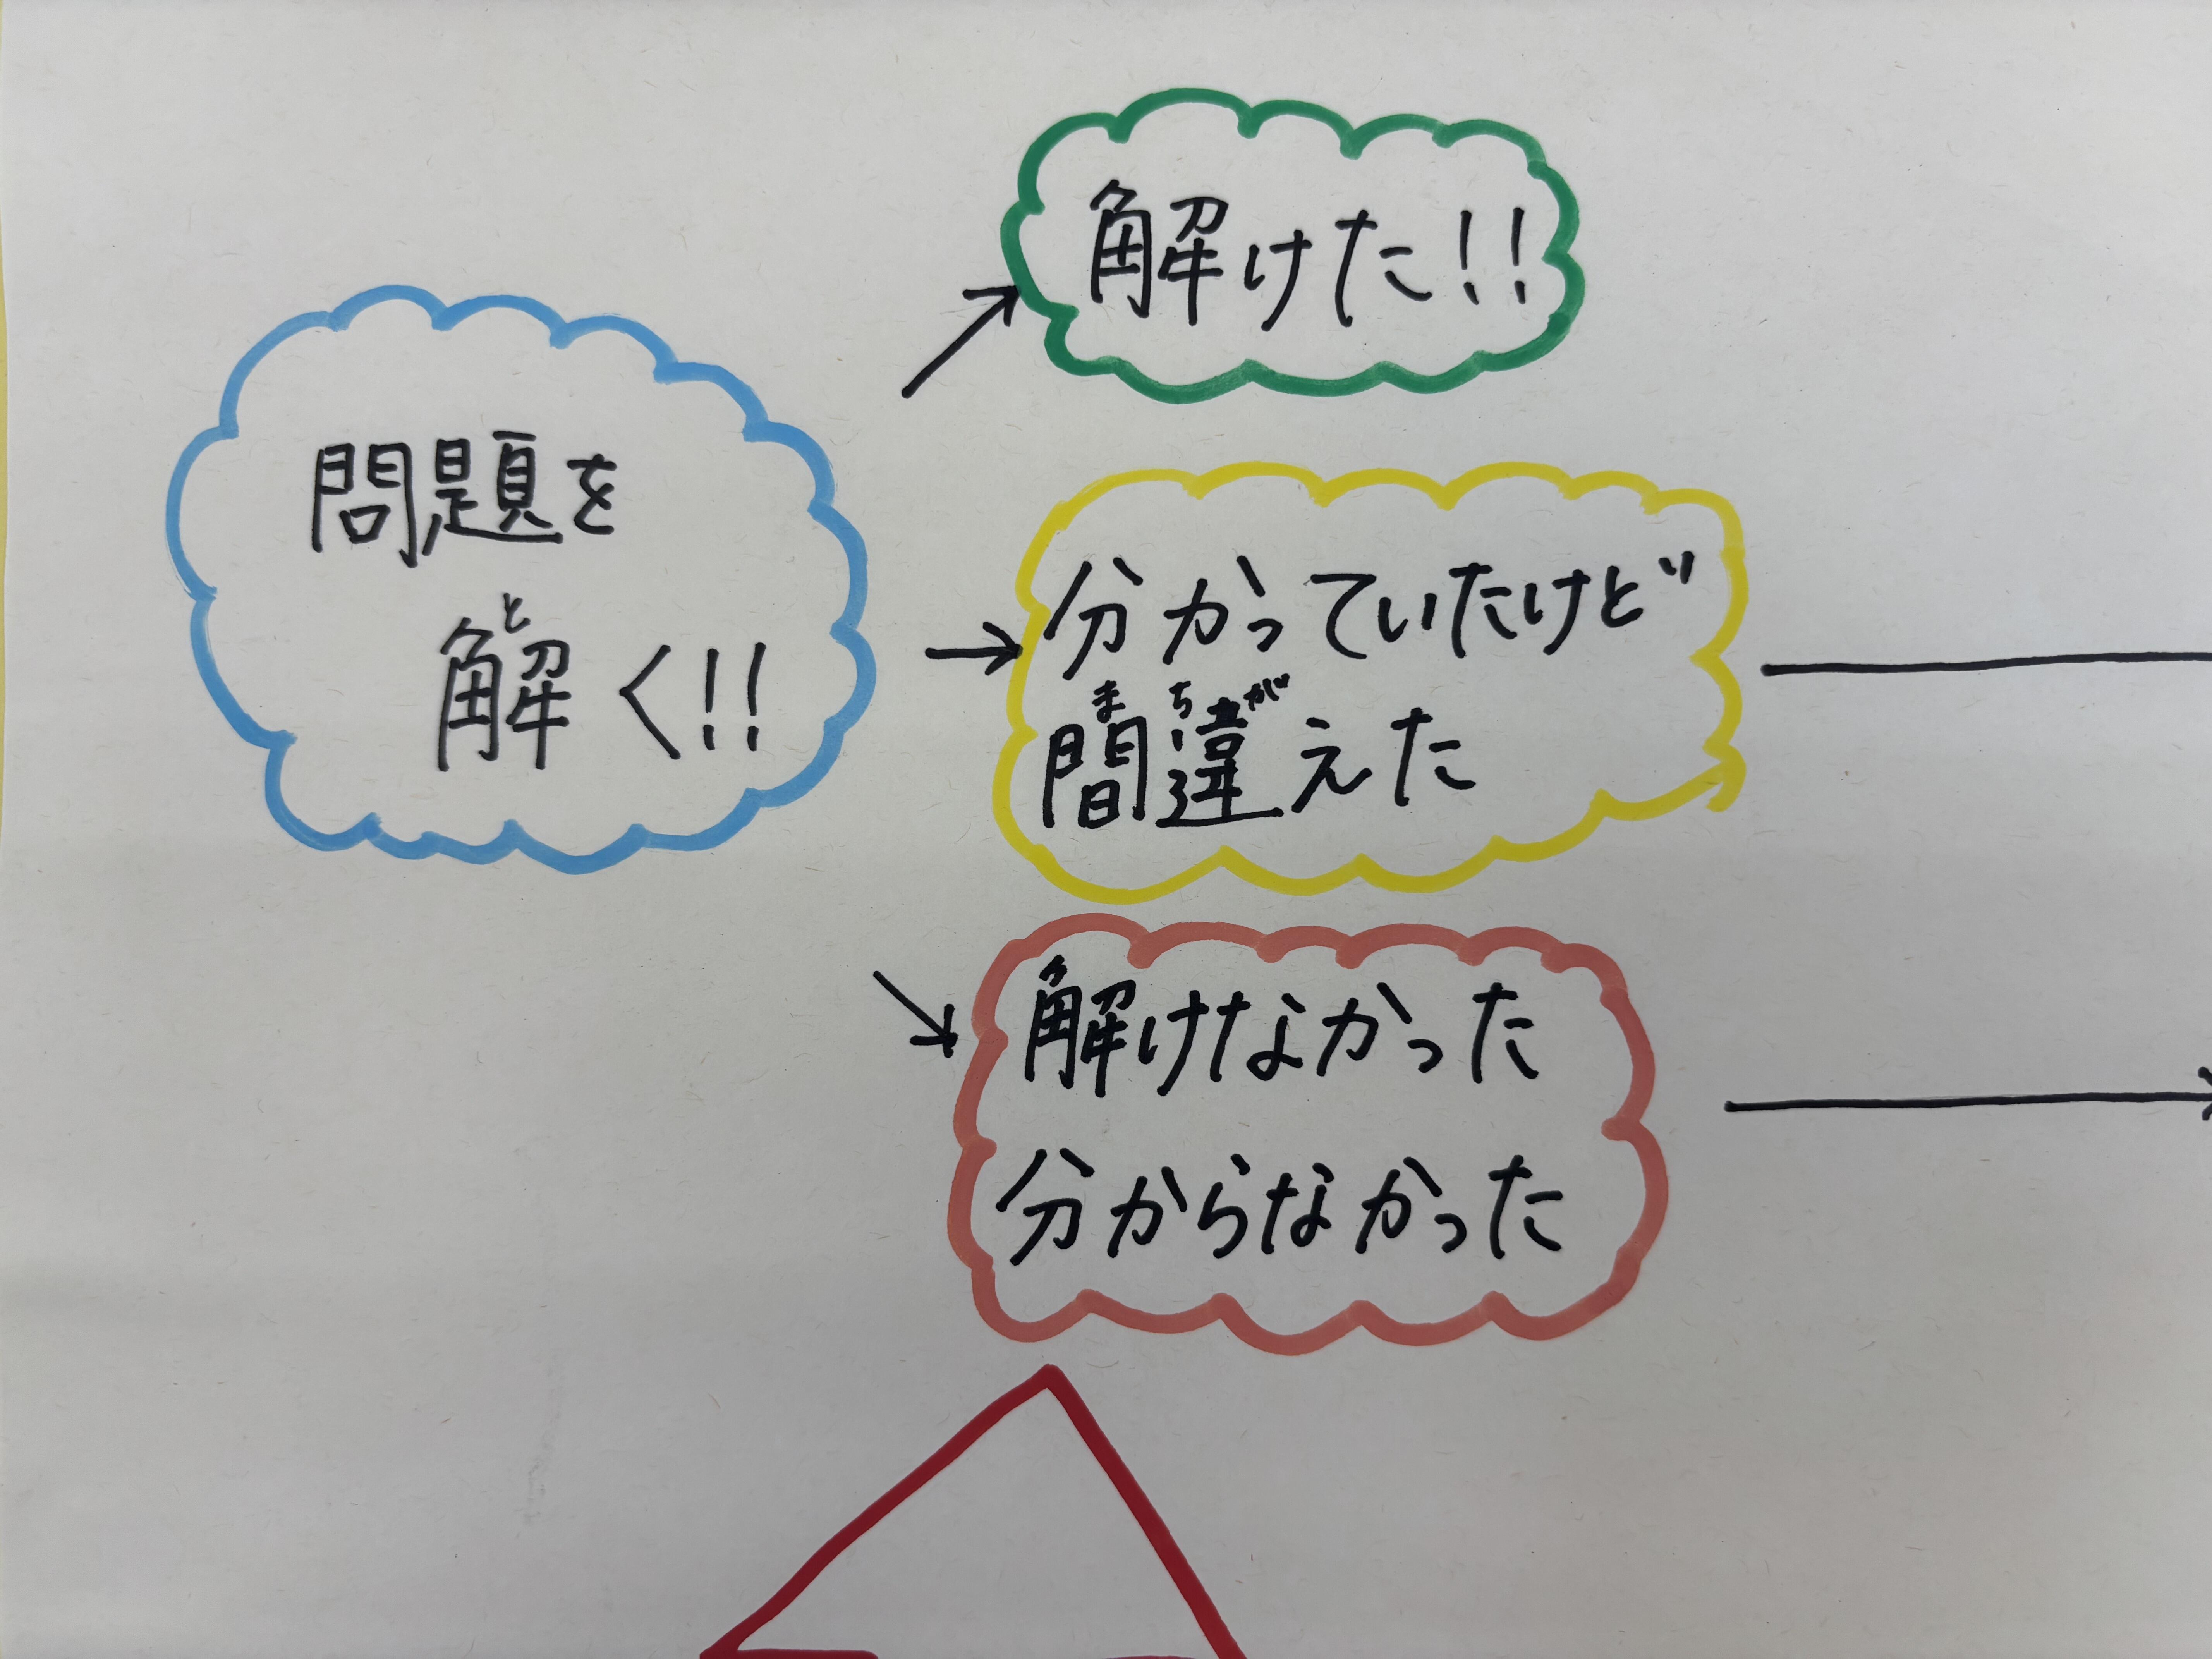 問題を
解く!!
と
解けた!!
分かっていたけど
間違えた
ま ちが
解けなかった
分からなかった